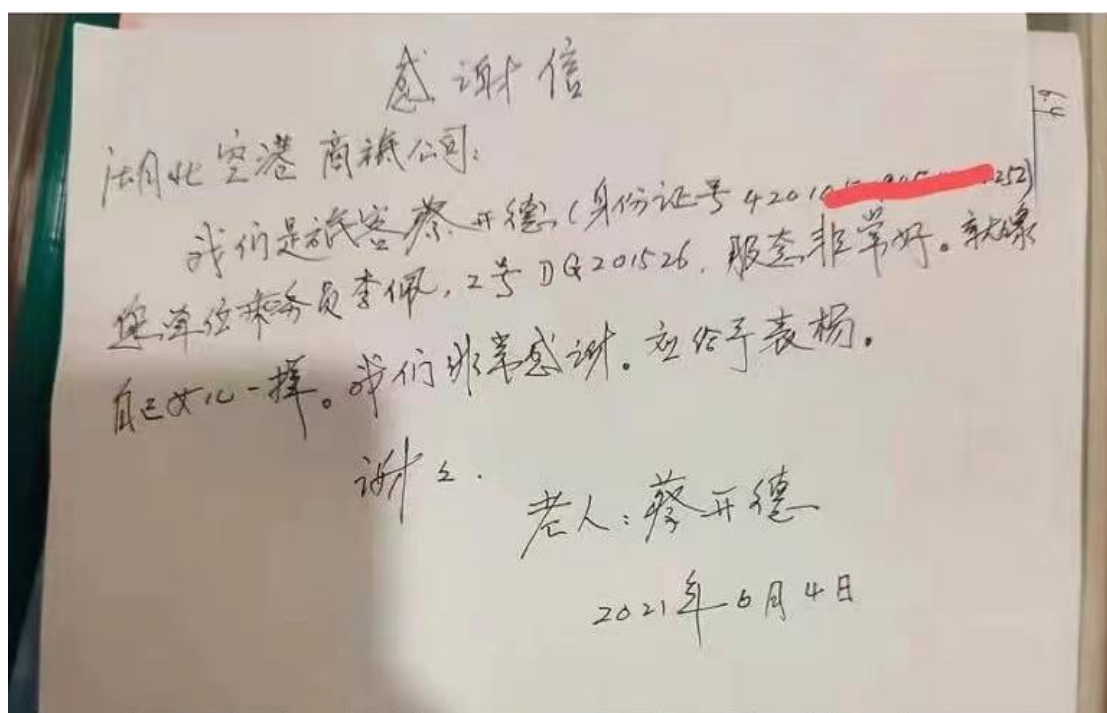 感谢信
湖北空港商旅公司:
我们是旅客蔡开德(身份证号4201 252)
您单位乘务员李佩,2号DG201526,服态非常好。像
自己女儿一样。我们非常感谢。应给予表杨。
谢々.
老人:蔡开德
2021年6月4日